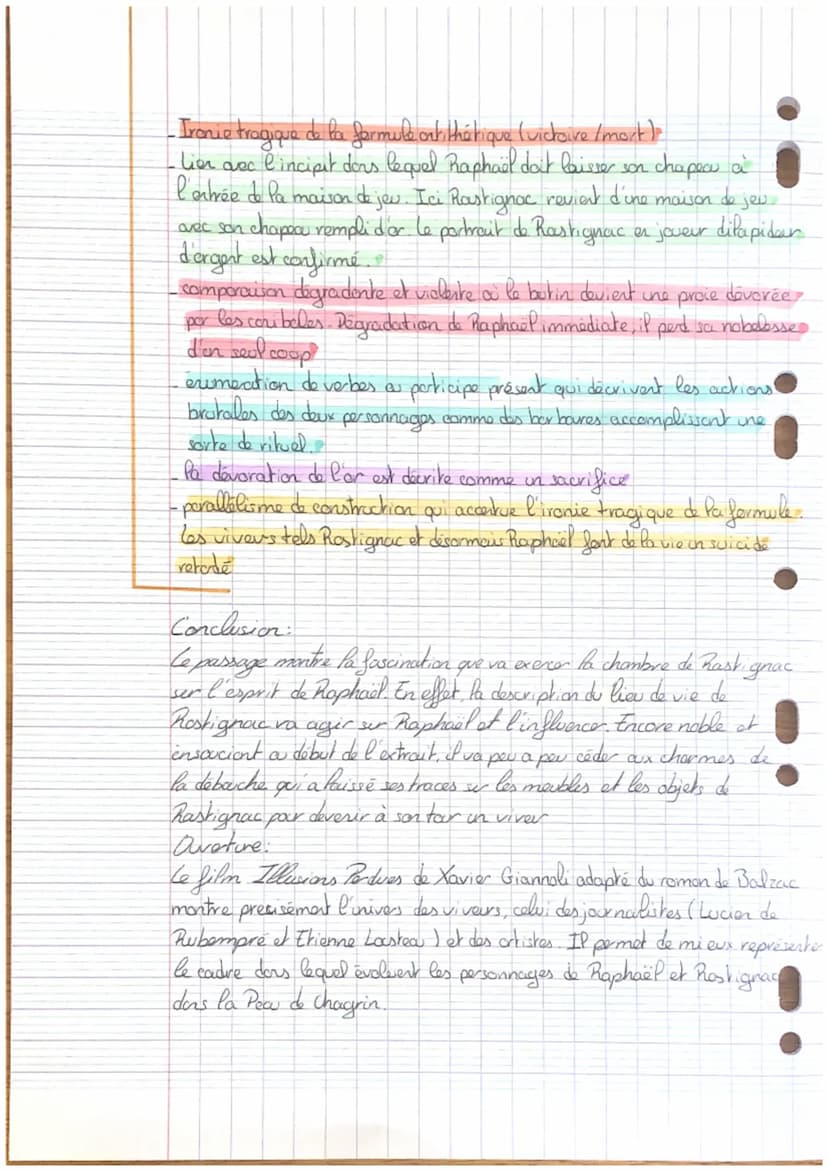 - Ironie tragique de la formule antithétique (victoire / mort)
- Lien avec l'incipit dans lequel Raphaël doit laisser son chapeau à
l'entrée de la maison de jeu. Ici Rastignac revient d'une maison de jeu
avec son chapeau rempli d'or. Le portrait de Rastignac en joueur dilapideur
d'argent est confirmé.
- comparaison dégradante et violente où le butin devient une proie dévorée
par les cannibales. Dégradation de Raphaël immédiate, il perd sa nobelesse
d'un seul coup
- énumération de verbes au participe présent qui décrivent les actions
brutales des deux personnages comme des barbares accomplissant une
sorte de rituel.
- la dévoration de l'or est décrite comme un sacrifice
- parallélisme de construction qui accentue l'ironie tragique de la formule.
Les viveurs tels Rastignac et désormais Raphaël font de la vie un suicide
retardé
Conclusion:
Le passage montre la fascination que va exercer la chambre de Rastignac
sur l'esprit de Raphaël. En effet, la description du lieu de vie de
Rastignac va agir sur Raphaël et l'influencer. Encore noble et
insouciant au début de l'extrait, il va peu a peu céder aux charmes de
la débauche qui a laissé ses traces sur les meubles et les objets de
Rastignac pour devenir à son tour un viveur
Ouverture:
Le film Illusions Perdues de Xavier Giannoli adapté du roman de Balzac
montre precisément l'univers des viveurs, celui des journalistes (Lucien de
Rubempré et Etienne Lousteau) et des artistes. Il permet de mieux représenter
le cadre dans lequel évoluent les personnages de Raphaël et Rastignac
dans la Peau de Chagrin.